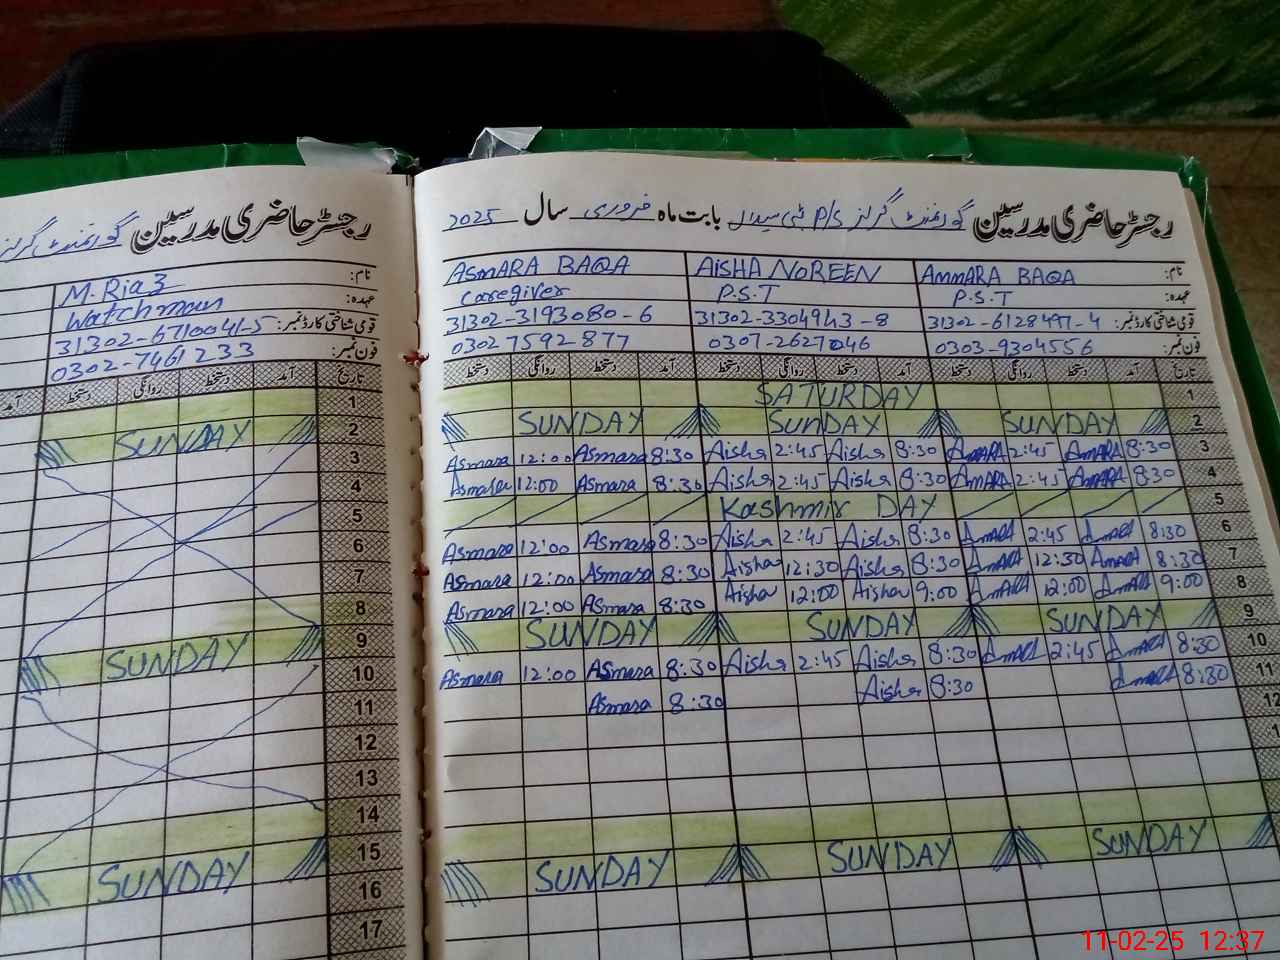 رجسٹر حاضری مدرسین گورنمنٹ گرلز
نام: M. Riaz
عہدہ: Watchman
قومی شناختی کارڈ نمبر: 31302-6710041-5
فون نمبر: 0302-7461233
تاریخ آمد دستخط روانگی دستخط آمد
1
2 SUNDAY
3
4
5
6
7
8
9 SUNDAY
10
11
12
13
14
15
16 SUNDAY
17
رجسٹر حاضری مدرسین گورنمنٹ گرلز P/S بابت ماہ فروری سال 2025
نام: AMMARA BAQA AISHA NOREEN ASMARA BAQA
عہدہ: P.S.T P.S.T Caregiver
قومی شناختی کارڈ نمبر: 31302-6128497-4 31302-3304943-8 31302-3193080-6
فون نمبر: 0303-9304556 0307-2627046 0302 7592-877
تاریخ آمد دستخط روانگی دستخط آمد دستخط روانگی دستخط آمد دستخط روانگی دستخط
1 SATURDAY
2 SUNDAY SUNDAY SUNDAY
3 8:30 AMARA 2:45 AMARA 8:30 Aisha 2:45 Aisha 8:30 Asmara 12:00 Asmara
4 8:30 AMARA 2:45 AMARA 8:30 Aisha 2:45 Aisha 8:30 Asmara 12:00 Asmara
5 Kashmir DAY
6 8:30 2:45 8:30 Aisha 2:45 Aisha 8:30 Asmara 12:00 Asmara
7 8:30 12:30 8:30 Aisha 12:30 Aisha 8:30 Asmara 12:00 Asmara
8 9:00 12:00 9:00 Aisha 12:00 Aisha 8:30 Asmara 12:00 Asmara
9 SUNDAY SUNDAY SUNDAY
10 8:30 2:45 8:30 Aisha 2:45 Aisha 8:30 Asmara 12:00 Asmara
11 8:30 8:30 Aisha 8:30 Asmara
12
SUNDAY SUNDAY SUNDAY
11-02-25 12:37